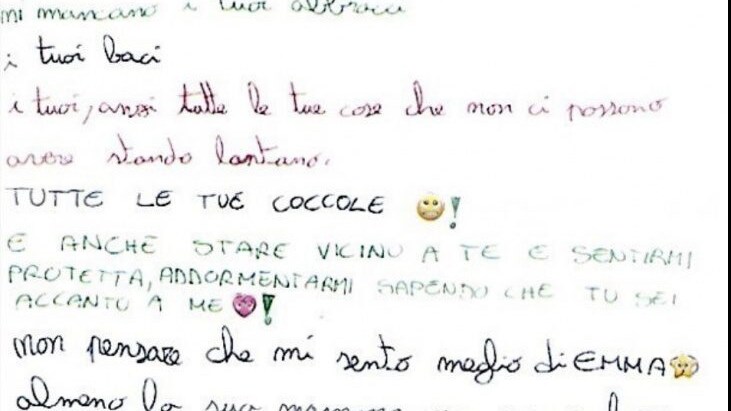 mi mancano i tuoi abbracci
i tuoi baci
i tuoi, anzi tutte le tue cose che non ci possono
avere stando lontano.
TUTTE LE TUE COCCOLE !
E ANCHE STARE VICINO A TE E SENTIRMI
PROTETTA, ADDORMENTARMI SAPENDO CHE TU SEI
ACCANTO A ME !
non pensare che mi sento meglio di EMMA
almeno la sua